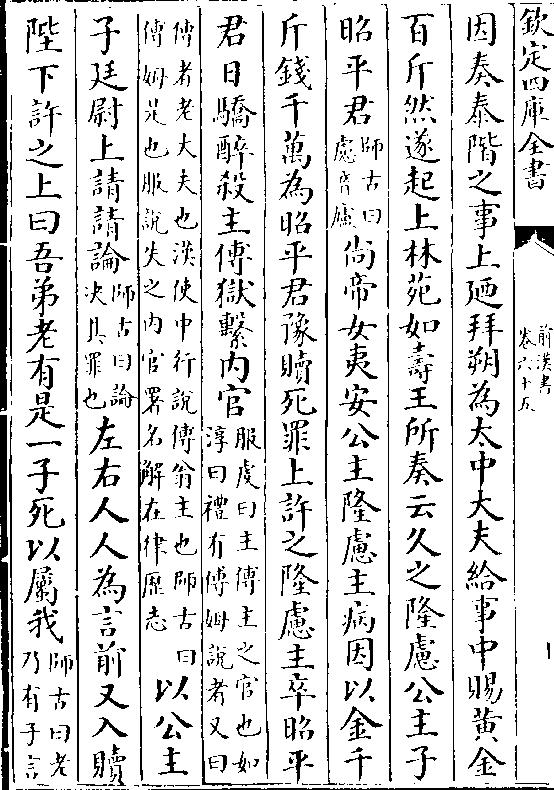 欽定四庫全書
前漢書
卷六十五
因奏泰階之事上廼拜朔為太中大夫給事中賜黃金
百斤然遂起上林苑如壽王所奏云久之隆慮公主子
昭平君師古曰慮音廬尚帝女夷安公主隆慮主病因以金千
斤錢千萬為昭平君豫贖死罪上許之隆慮主卒昭平
君日驕醉殺主傅獄繫内官服虔曰主傅主之官也如淳曰禮有傅姆說者又曰
傅者老大夫也漢使中行說傅翁主也師古曰傅姆是也服說失之内官署名解在律歷志以公主
子廷尉上請請論師古曰論決其罪也左右人人為言前又入贖
陛下許之上曰吾弟老有是一子死以屬我師古曰老乃有子言